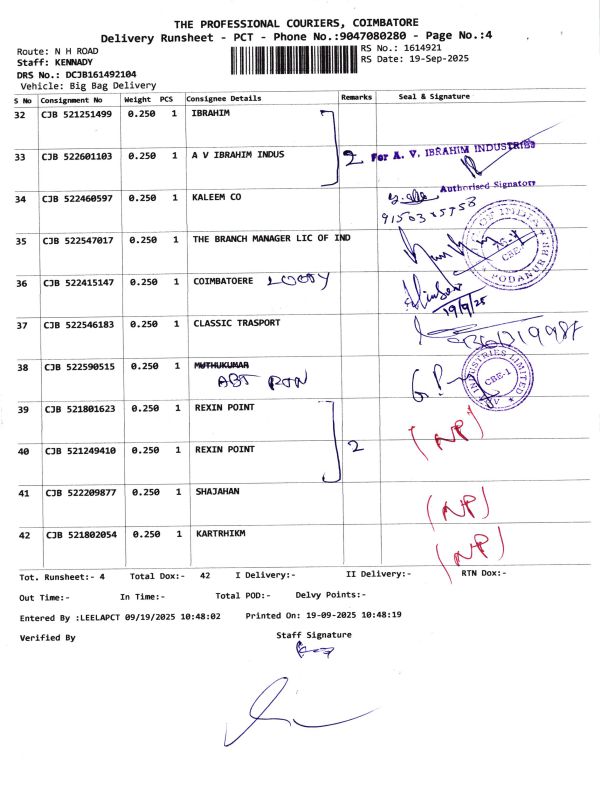 THE PROFESSIONAL COURIERS, COIMBATORE
Delivery Runsheet - PCT - Phone No.:9047080280 - Page No.:4
Route: N H ROAD
RS No.: 1614921
Staff: KENNADY
RS Date: 19-Sep-2025
DRS No.: DCJB161492104
Vehicle: Big Bag Delivery
S No Consignment No Weight PCS Consignee Details Remarks Seal & Signature
32 CJB 521251499 0.250 1 IBRAHIM
33 CJB 522601103 0.250 1 A V IBRAHIM INDUS 2 For A. V. IBRAHIM INDUSTRIES
Authorised Signatory
34 CJB 522460597 0.250 1 KALEEM CO
35 CJB 522547017 0.250 1 THE BRANCH MANAGER LIC OF IND
36 CJB 522415147 0.250 1 COIMBATOERE
19/9/25
37 CJB 522546183 0.250 1 CLASSIC TRASPORT
38 CJB 522590515 0.250 1 MUTHUKUMAR
INDUSTRIES LIMITED
CBE-1
39 CJB 521801623 0.250 1 REXIN POINT (NP)
40 CJB 521249410 0.250 1 REXIN POINT 2
41 CJB 522209877 0.250 1 SHAJAHAN (NP)
42 CJB 521802054 0.250 1 KARTRHIKM (NP)
Tot. Runsheet:- 4 Total Dox:- 42 I Delivery:- II Delivery:- RTN Dox:-
Out Time:- In Time:- Total POD:- Delvy Points:-
Entered By :LEELAPCT 09/19/2025 10:48:02 Printed On: 19-09-2025 10:48:19
Verified By Staff Signature